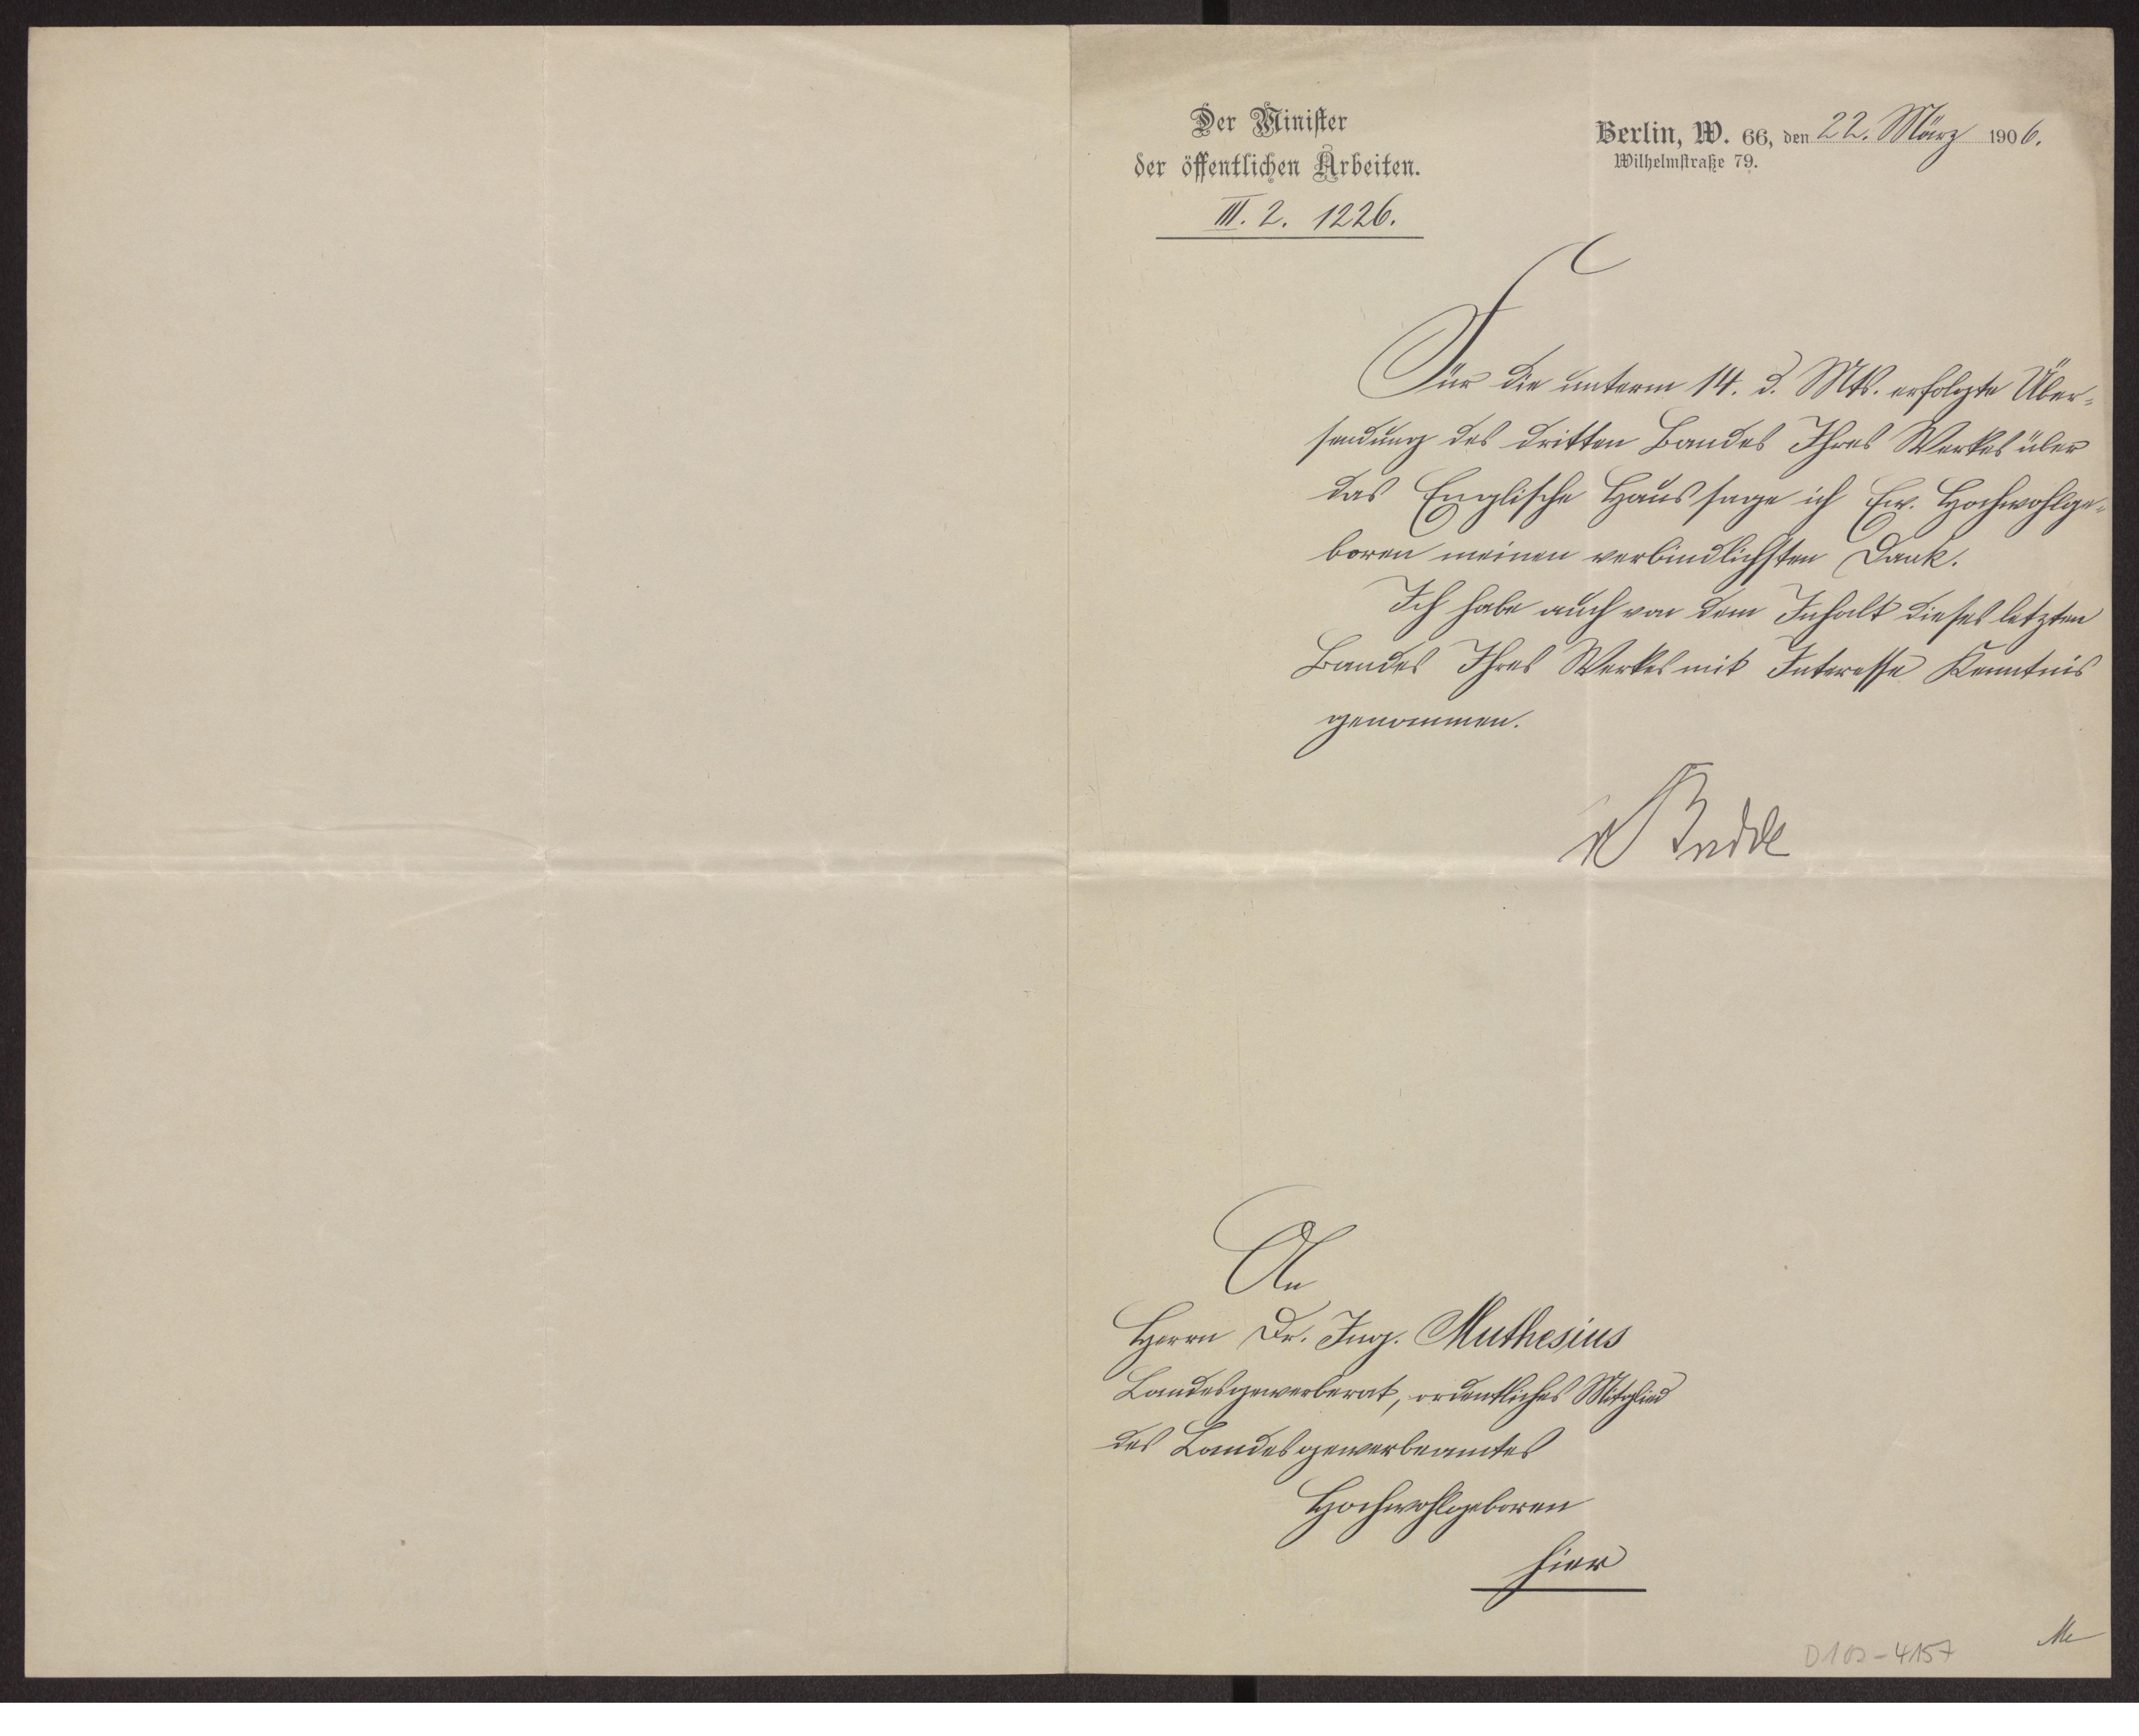 Der Minister
der öffentlichen Arbeiten.
III. 2. 1226.
Berlin, W. 66, den 22. März 1906.
Wilhelmstraße 79.
Für die unterm 14. d. Mts. erfolgte Über-
sendung des dritten Bandes Ihres Werkes über
das Englische Haus sage ich Ew. Hochwohlge-
boren meinen verbindlichsten Dank.
Ich habe auch von dem Inhalt dieses letzten
Bandes Ihres Werkes mit Interesse Kenntnis
genommen.
Budde
An
Herrn Dr. Ing. Muthesius
Landesgewerberat, ordentliches Mitglied
des Landesgewerbeamtes
Hochwohlgeboren
hier